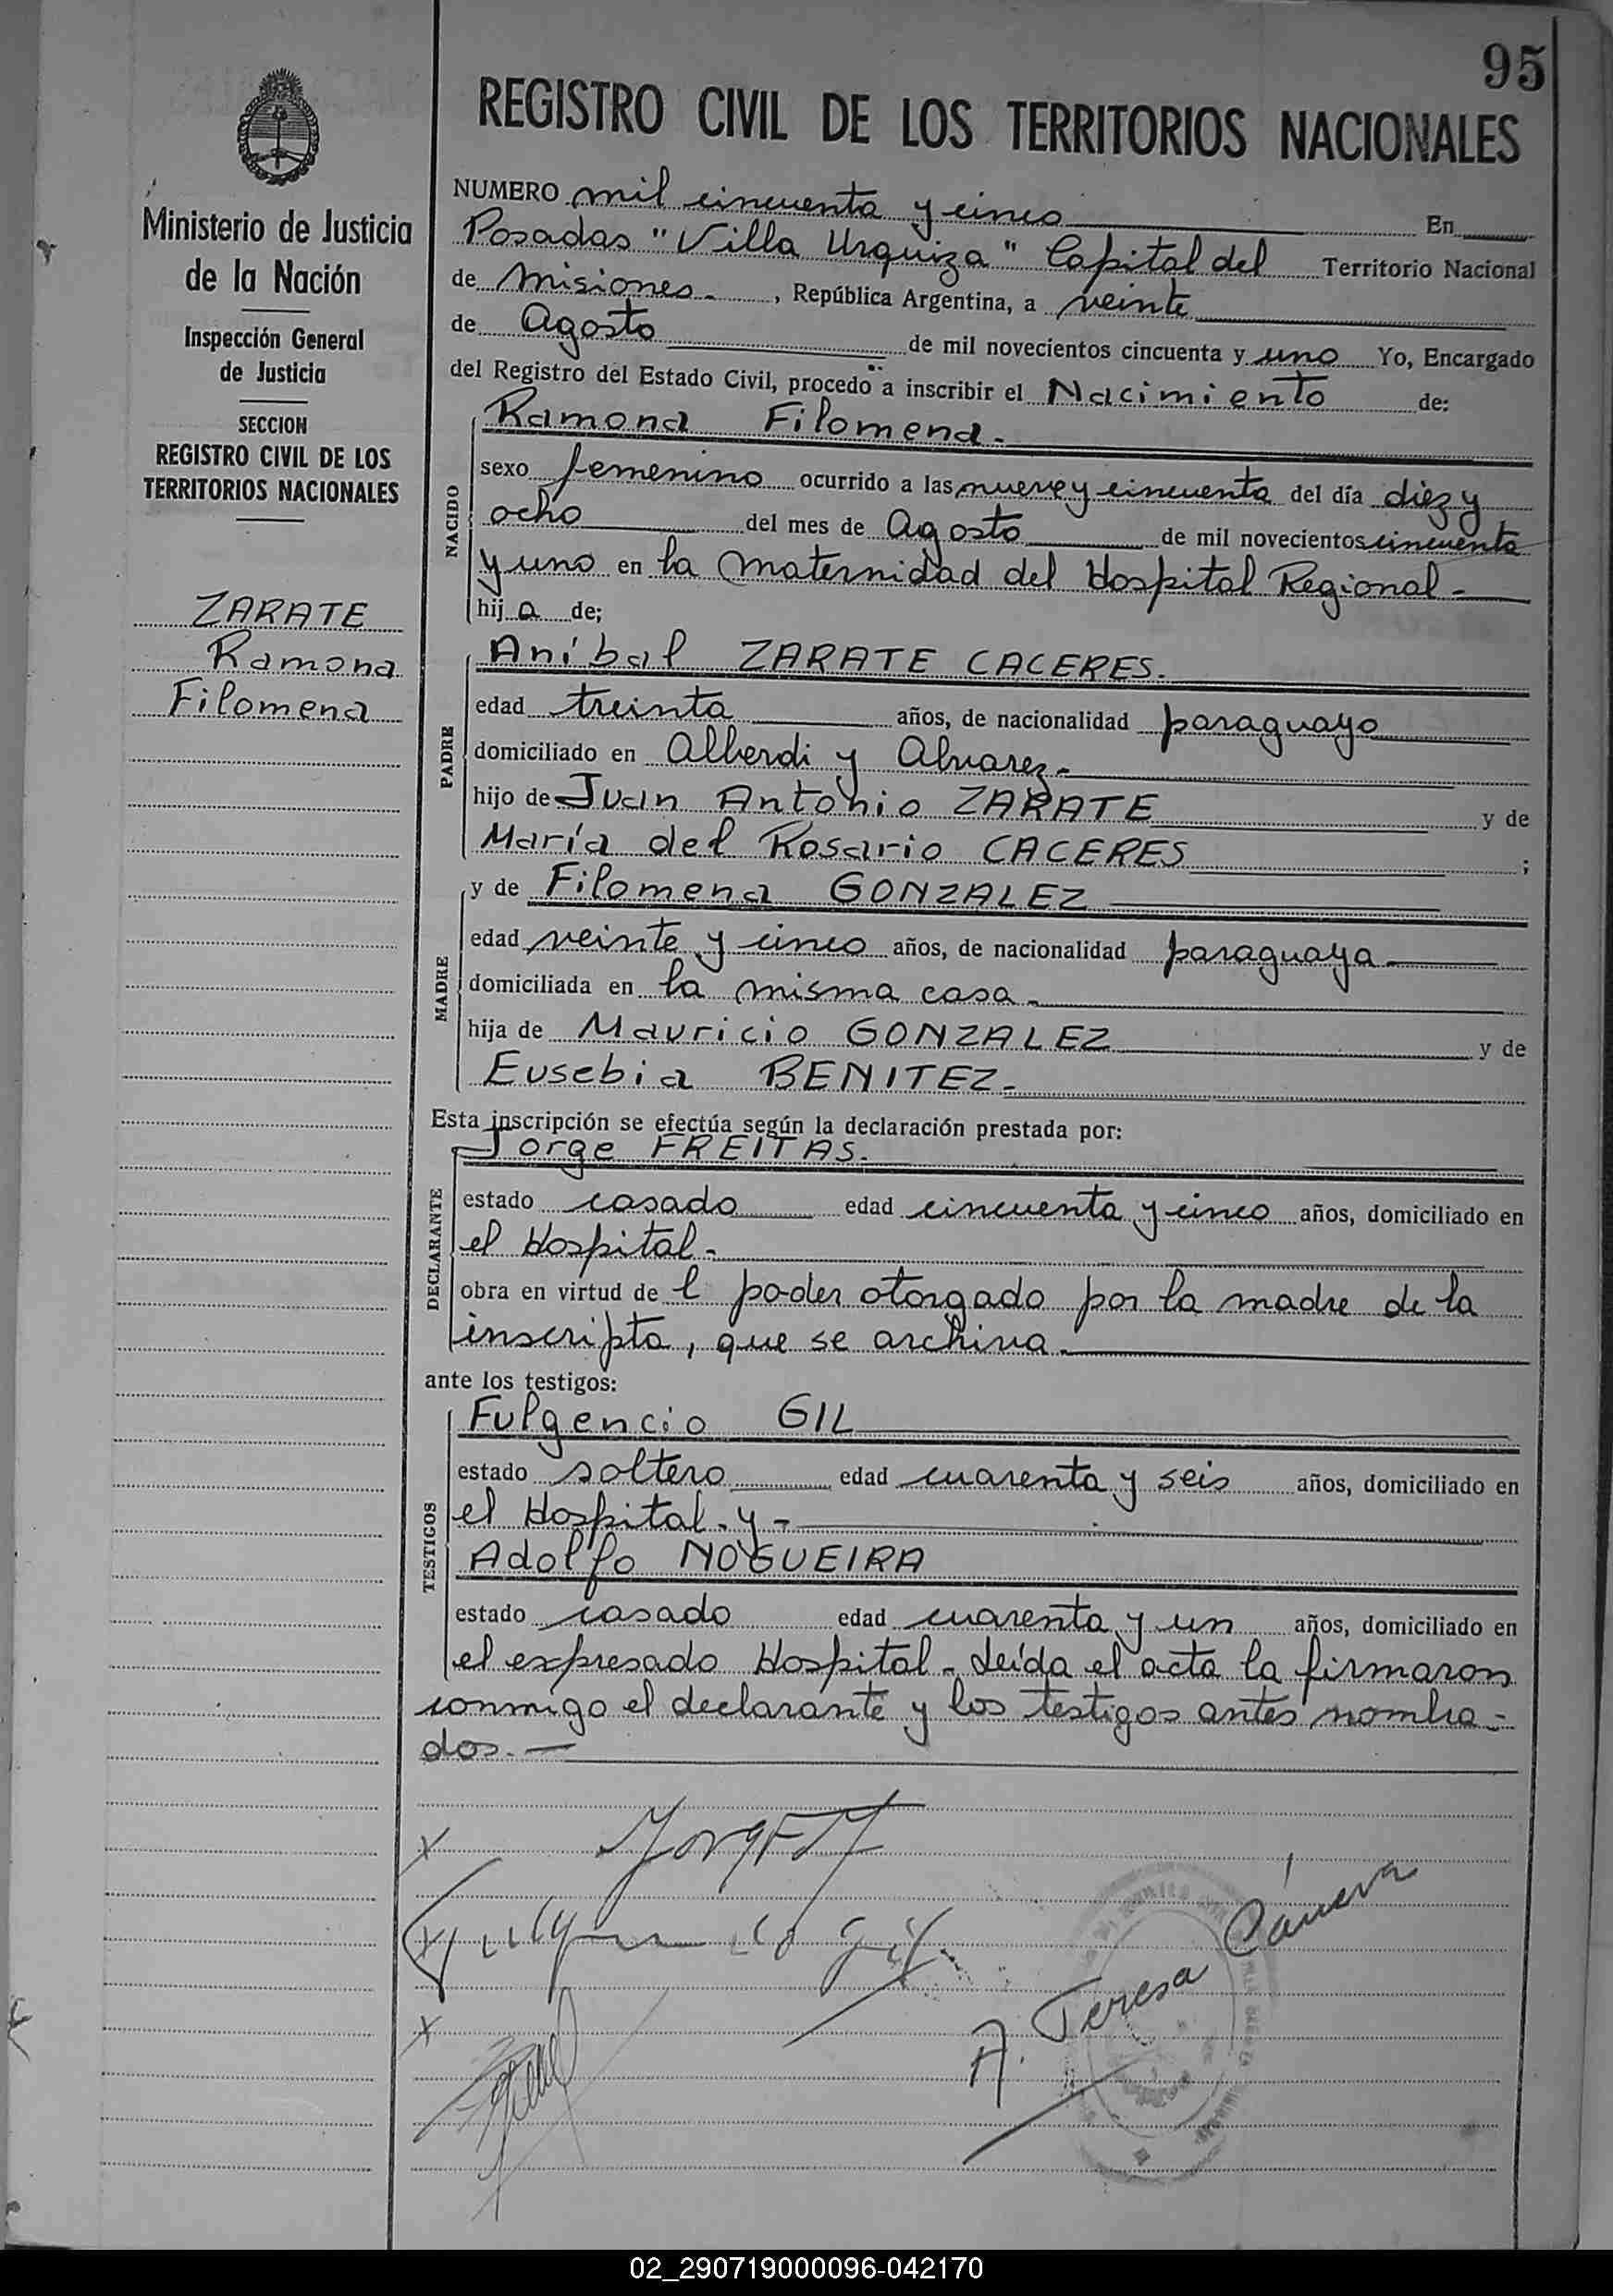 95
REGISTRO CIVIL DE LOS TERRITORIOS NACIONALES
Ministerio de Justicia
de la Nación
Inspección General
de Justicia
SECCION
REGISTRO CIVIL DE LOS
TERRITORIOS NACIONALES
ZARATE
Ramona
Filomena
NUMERO mil cincuenta y cinco En
Posadas "Villa Urquiza" Capital del Territorio Nacional
de Misiones. , República Argentina, a veinte
de Agosto de mil novecientos cincuenta y uno Yo, Encargado
del Registro del Estado Civil, procedo a inscribir el Nacimiento de:
NACIDO
Ramona Filomena.
sexo femenino ocurrido a las nueve y cincuenta del día diez y
ocho del mes de Agosto de mil novecientos cincuenta
y uno en la Maternidad del Hospital Regional -
hij a de;
PADRE
Aníbal ZARATE CACERES.
edad treinta años, de nacionalidad paraguayo
domiciliado en Alberdi y Alvarez.-
hijo de Juan Antonio ZARATE y de
María del Rosario CACERES ;
MADRE
y de Filomena GONZALEZ
edad veinte y cinco años, de nacionalidad paraguaya
domiciliada en la misma casa.
hija de Mauricio GONZALEZ y de
Eusebia BENITEZ.
Esta inscripción se efectúa según la declaración prestada por:
DECLARANTE
Jorge FREITAS.
estado casado edad cincuenta y cinco años, domiciliado en
el Hospital.
obra en virtud de l poder otorgado por la madre de la
inscripta, que se archiva.
ante los testigos:
TESTIGOS
Fulgencio GIL
estado soltero edad cuarenta y seis años, domiciliado en
el Hospital. y -
Adolfo NOGUEIRA
estado casado edad cuarenta y un años, domiciliado en
el expresado Hospital - Leída el acta la firmaron
conmigo el declarante y los testigos antes nombra-
dos. —
x
x Fulgencio Gil
x
A. Teresa Cámera
02_290719000096-042170